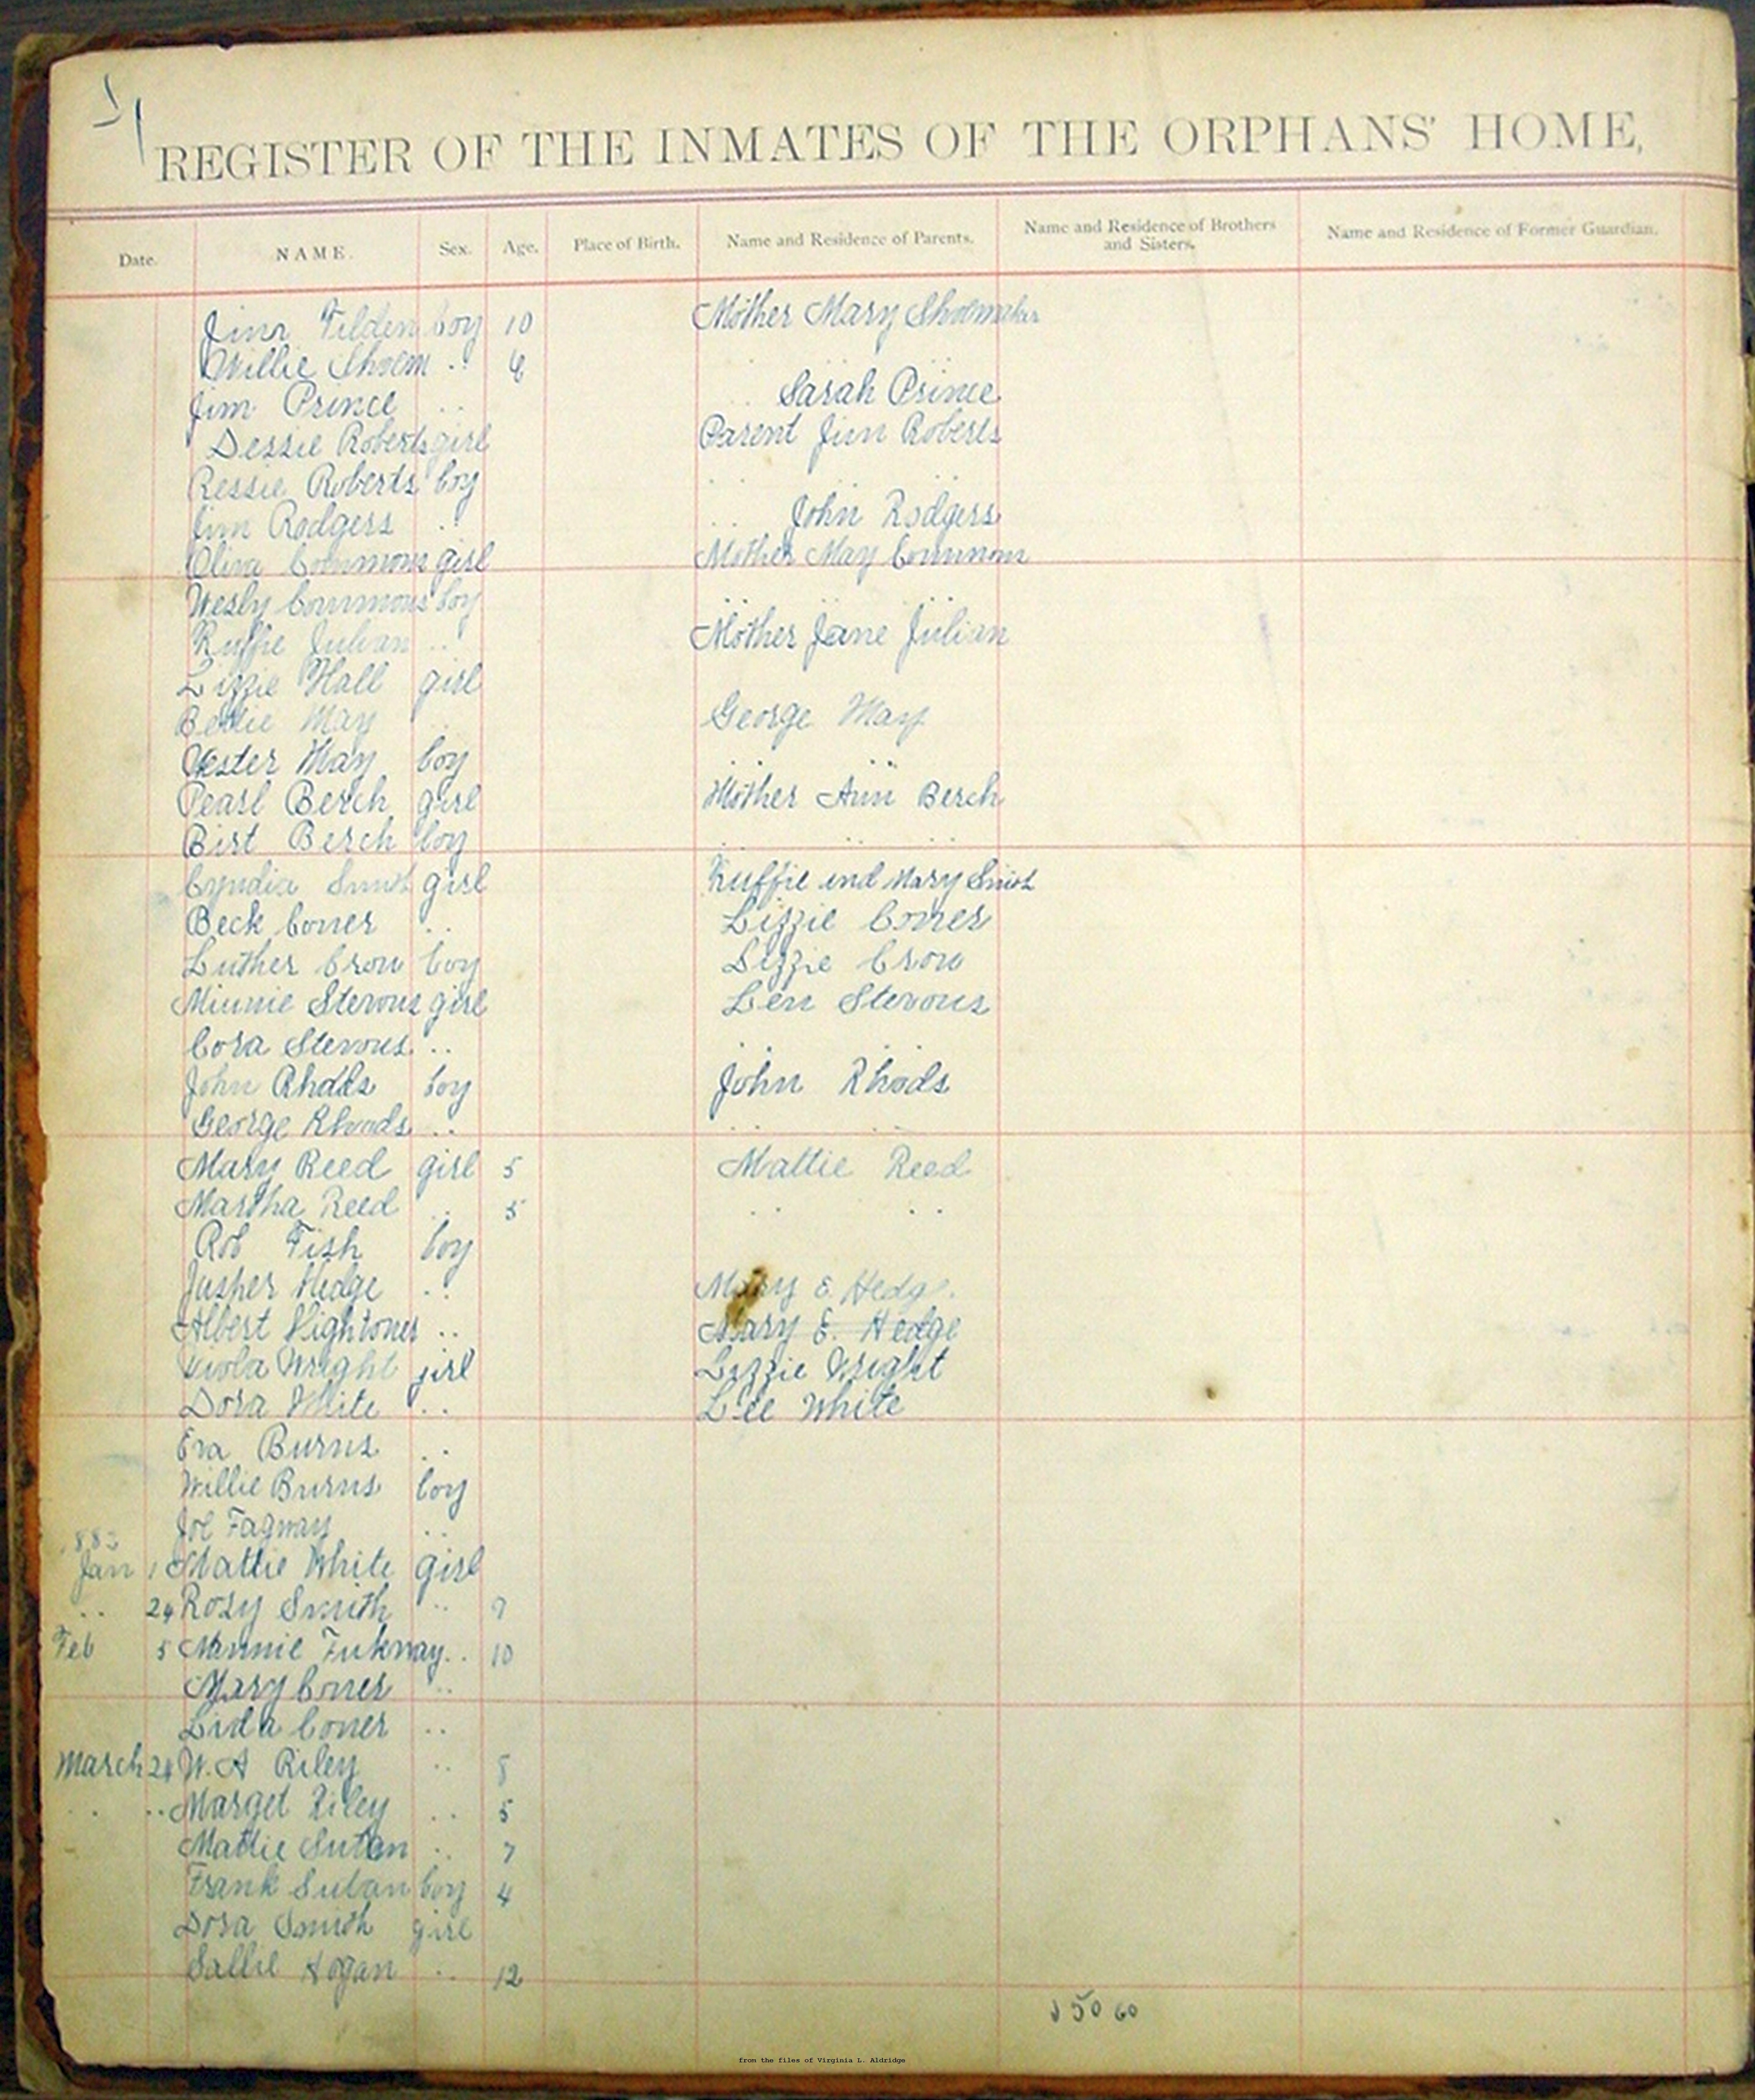 REGISTER OF THE INMATES OF THE ORPHANS' HOME,
Date. NAME. Sex. Age. Place of Birth. Name and Residence of Parents. Name and Residence of Brothers and Sisters. Name and Residence of Former Guardian.
Jim Tilden boy 10 Mother Mary Shoemaker
Willie Shoem .. 6 .. ..
Jim Prince .. .. Sarah Prince
Dessie Roberts girl Parent Jim Roberts
Ressie Roberts boy .. ..
Jim Rodgers .. .. John Rodgers
Oliva Commons girl Mother May Commons
Wesly Commons boy .. ..
Ruffie Julian .. Mother Jane Julian
Lizzie Hall girl
Bettie May .. George May
Vester May boy .. ..
Pearl Berch girl Mother Ann Berch
Birt Berch boy .. .. ..
Cyndia Smith girl Ruffie and Mary Smith
Beck Coner .. Lizzie Coner
Luther Crow boy Lizzie Crow
Minnie Stevons girl Len Stevons
Cora Stevons .. .. ..
John Rhods boy John Rhods
George Rhoads .. .. ..
Mary Reed girl 5 Mattie Reed
Martha Reed .. 5 .. ..
Rob Fish boy
Jusper Hedge .. Mary E. Hedg.
Albert Hightoner .. Mary E. Hedge
Viola Wright girl Lizzie Wright
Dora White .. Lee White
Eva Burns ..
Willie Burns boy
Joe Fagway ..
1883
Jan 1 Mattie White girl
.. 24 Rosy Smith .. 9
Feb 5 Minnie Fukway .. 10
Mary Coner ..
Lida Coner ..
March 24 W. A Riley .. 8
.. .. Marget Riley .. 5
Mattie Sutan .. 7
Frank Sutan boy 4
Dora Smith girl
Sallie Hogan .. 12
50 60
from the files of Virginia L. Aldridge